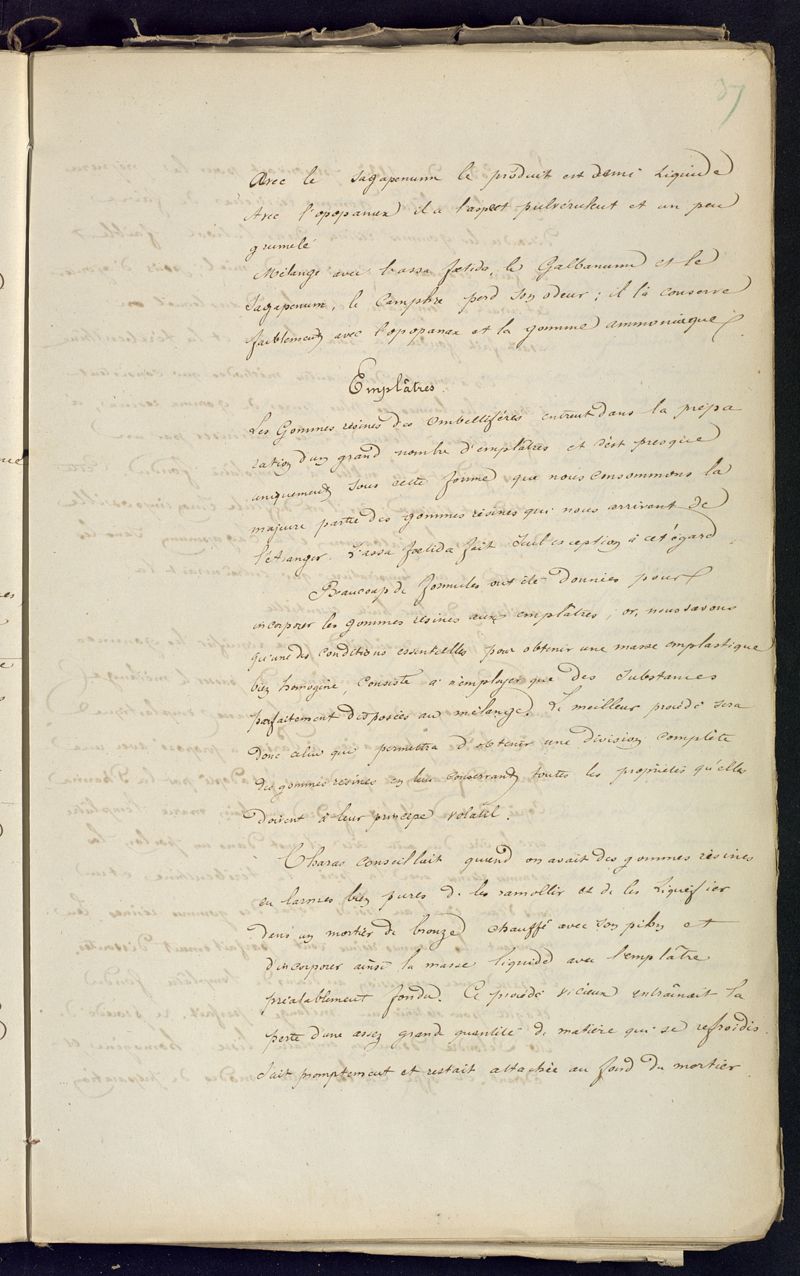 37
Avec le Sagapenum le produit est demi Liquide
Avec l'opopanax il a l'aspect pulvérulent et un peu
grumelé
Mélangé avec l'assa fœtida, le Galbanum et le
Sagapenum, le Camphre perd son odeur ; il la conserve
faiblement avec l'opopanax et la gomme ammoniaque.
Emplâtres.
Les Gommes résines des Ombellifères entrent dans la prépa
ration d'un grand nombre d'emplâtres et c'est presque
uniquement sous cette forme que nous consommons la
majeure partie des gommes résines qui nous arrivent de
l'étranger. L'assa fœtida fait seul exception à cet égard
Beaucoup de formules ont été données pour
incorporer les gommes résines aux emplâtres ; or, nous savons
qu'une des conditions essentielles pour obtenir une masse emplastique
bien homogène, consiste à n'employer que des substances
parfaitement disposées au mélange. Le meilleur procédé sera
donc celui qui permettra d'obtenir une division complète
des gommes résines en leur conservant toutes les propriétés qu'elles
doivent à leur principe volatil.
Charas conseillait quand on avait des gommes résines
en larmes bien pures de les ramollir et de les liquéfier
dans un mortier de bronze chauffé avec son pilon et
d'incorporer ainsi la masse liquide avec l'emplâtre
préalablement fondu. Ce procédé vicieux entraînait la
perte d'une assez grande quantité de matière qui se refroidis
sait promptement et restait attachée au fond du mortier